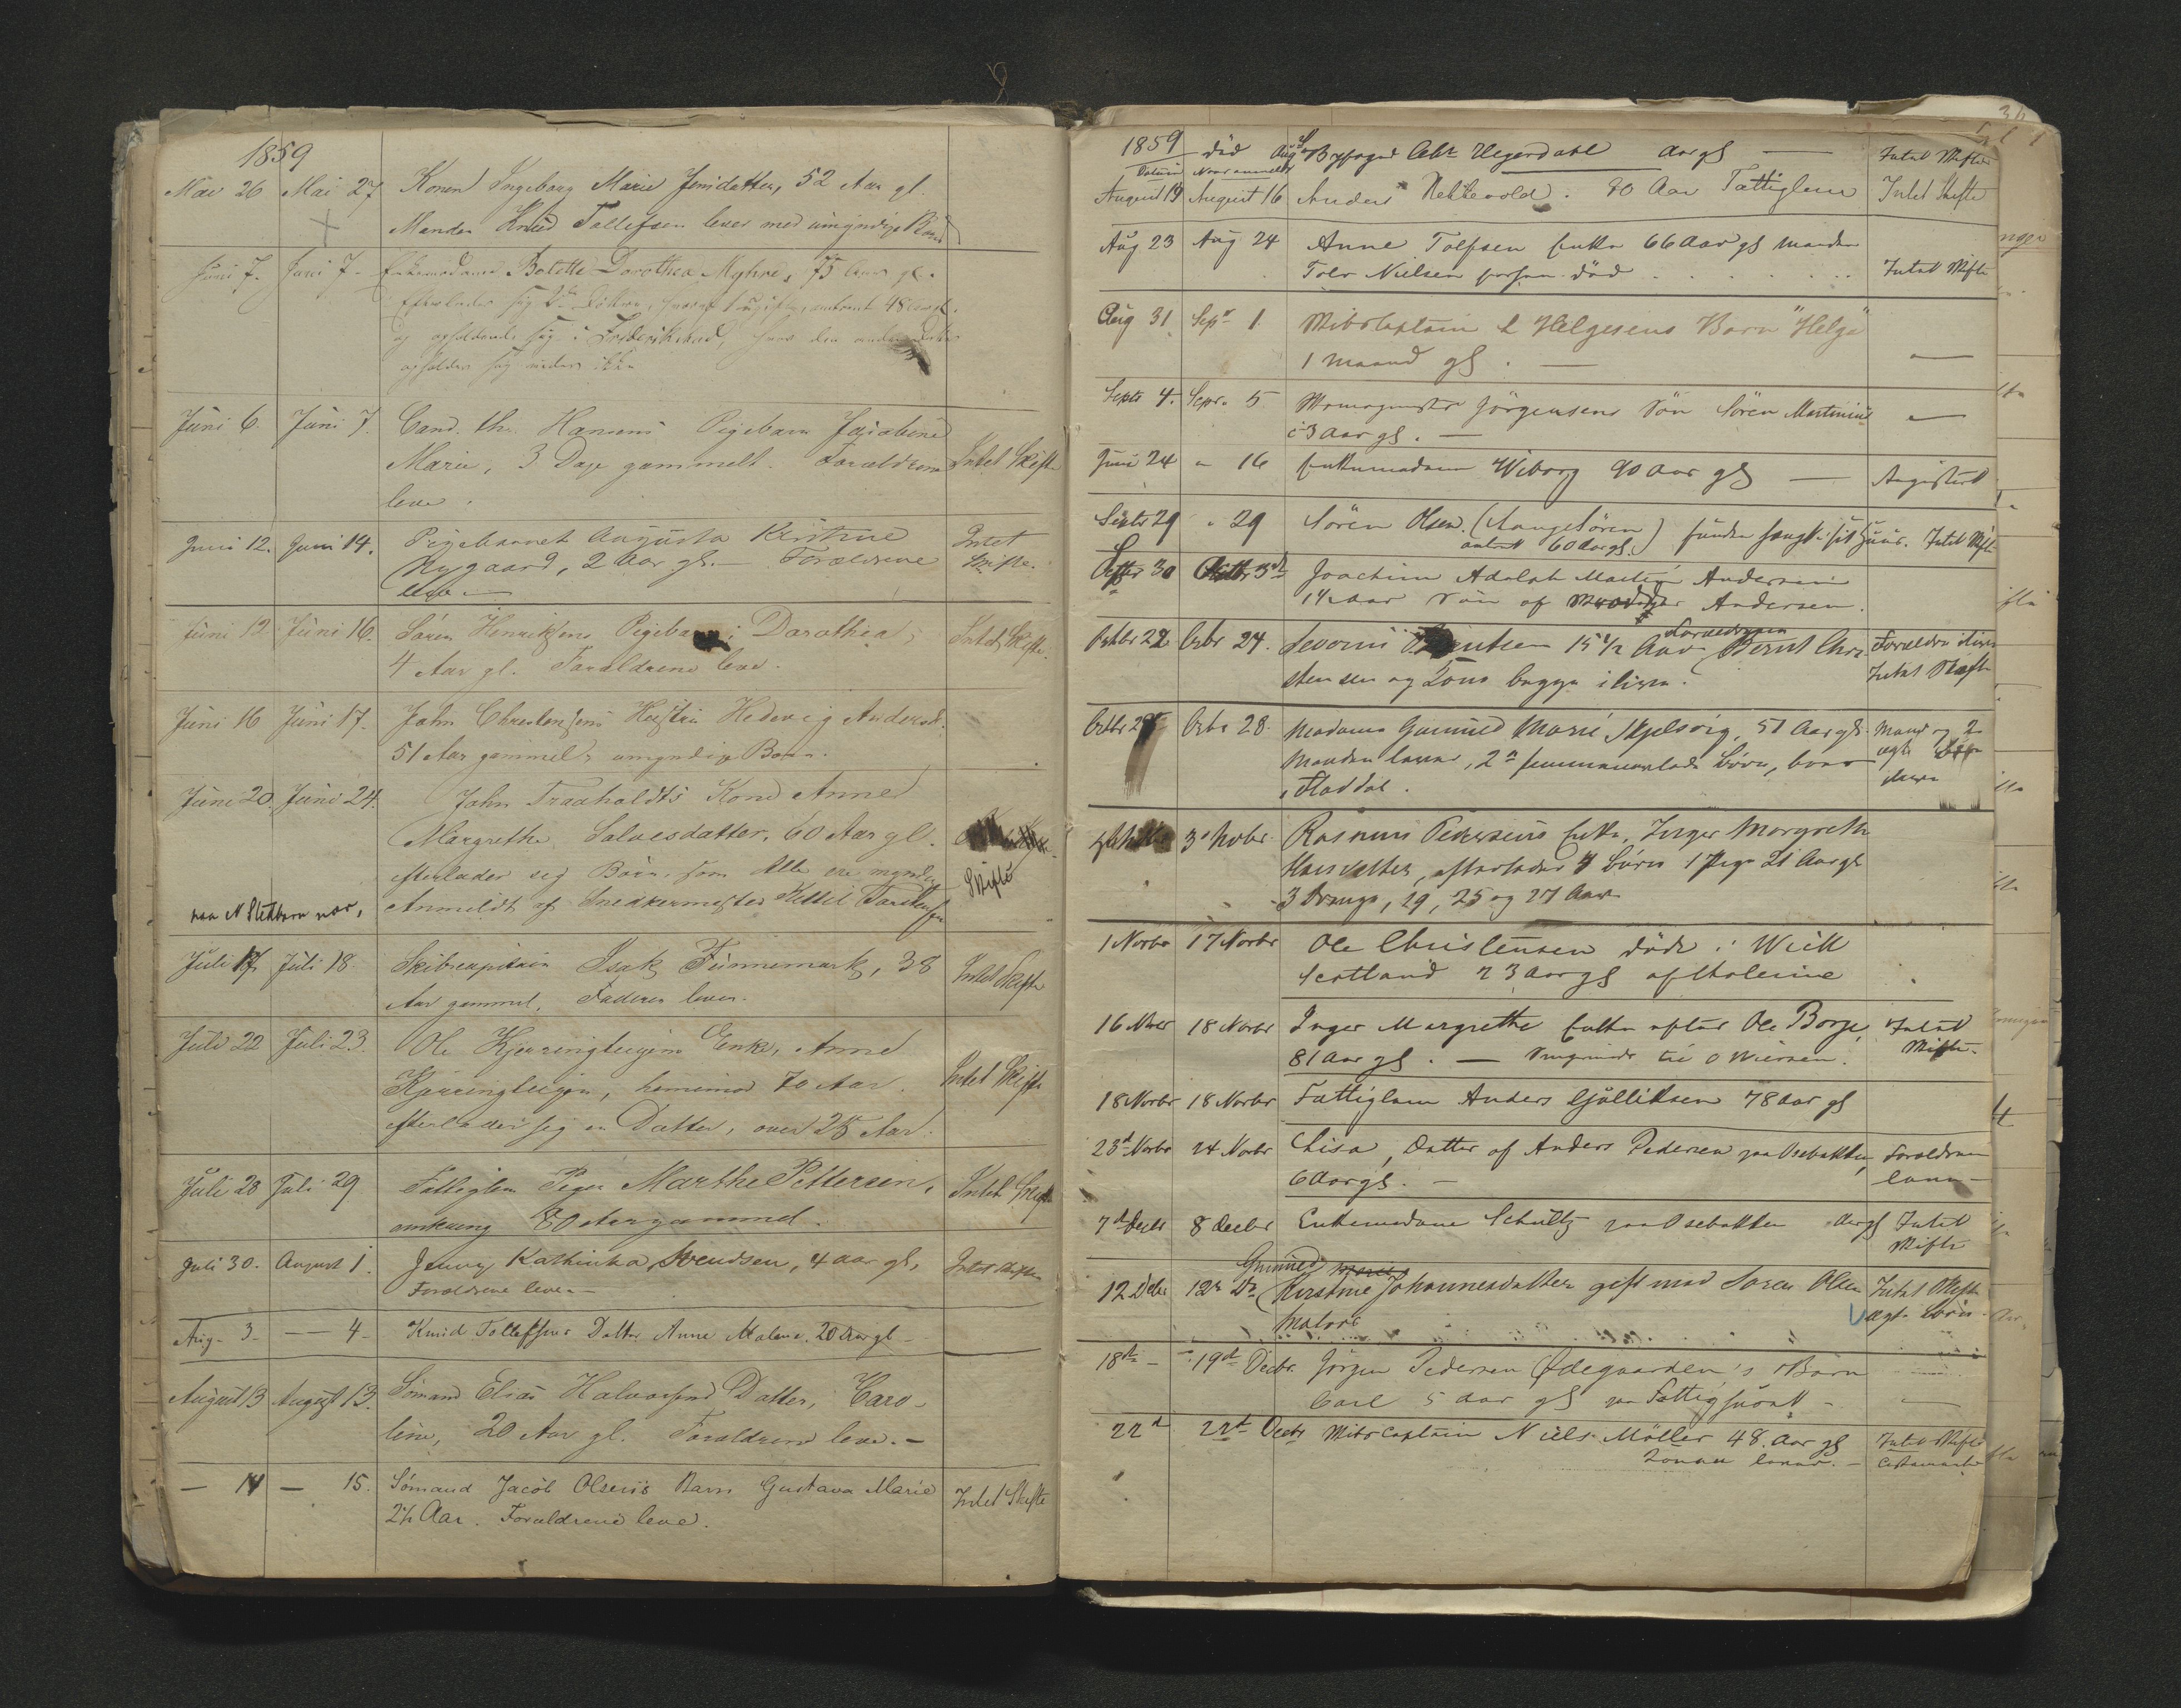 1859
Mai 26 Mai 27 Konen Ingeborg Marie Jensdatter, 52 Aar gl.
Manden Knud Tollefsen lever med umyndige Børn
Juni 7. Juni 7. Enkemadame Bolette Dorothea Myhre, 75 Aar gl.
Efterlader sig 2de Døttre, hvoraf 1 ugift, omtrent 48 Aar gl.
og opholdende sig i Frederikstad, hvor den anden Datter
opholder sig vides ikke
Juni 6. Juni 7. Cand. th. Hansens Pigebarn Jacobine
Marie, 3 Dage gammelt. Forældrene Intet Skifte
leve.
Juni 12. Juni 14. Pigebarnet Augusta Kristine Intet
Nygaard, 2 Aar gl. — Forældrene Skifte.
leve —
Juni 12 Juni 16. Søren Henriksens Pigebarn Dorothea, Intet Skifte.
4 Aar gl. Forældrene leve.
Juni 16 Juni 17. John Christensens Hustru Hedevig Andersd.
51 Aar gammel, umyndige Børn.
Juni 20. Juni 24. John Traaholdts Kone Anne
Margrethe Salvesdatter, 60 Aar gl.
efterlader sig Børn, som Alle ere myndige Skifte
Anmeldt af Snedkermester Kittil Torstensen
Juli 17 Juli 18. Skibscapitain Isak Fünnemark, 38 Intet Skifte
Aar gammel, Faderen lever.
Juli 22 Juli 23. Ole Kjerringteigens Enke, Anne
Kjerringteigen, henimod 70 Aar. Intet Skifte
efterlader sig en Datter, over 25 Aar.
Juli 28 Juli 29 Fattiglem Pige Marthe Pettersen, Intet Skifte
omkring 80 Aar gammel.
Juli 30. August 1. Jenny Kathinka Svendsen, 4 aar gl, Intet skifte
Forældrene leve. —
Aug. 3. — 4 — Knud Tollefsens Datter Anne Malene. 20 Aar gl —
August 13 August 13. Sømand Elias Halvorsens Datter, Caro-
line, 20 Aar gl. Forældrene leve. —
— 14 — 15. Sømand Jacob Olsens Barn Gustava Marie Intet Skifte
2½ Aar. Forældrene leve.
1859 død Byfoged Hegerdahl aar gl — Intet Skifte
August 19 August 16 Anders . 80 Aar Fattiglem Intet Skifte
Aug 23 Aug 24 Anne Tolfsen Enke 66 Aar gl Manden
Tolv Nielsen død Intet Skifte
Aug 31 Sepr 1. Skibskaptain L Helgesens Barn "Helga"
1 maaned gl. — —
Septr 4. Sepr. 5 Jørgensens Søn Søren Martinius —
3 Aar gl. —
Juni 24 " 16 Enkemadam Wiborg 90 Aar gl —
Septr 29 " 29 Søren Olsen. (LangeSøren) funden hængt i sit Huus. Intet Skifte
omtrent 60 Aar gl.
Septr 30 Octbr 3de Joachim Adolph Andersen
14 Aar Søn af Andersen.
Octbr 22 Octbr 24. Berntsen 15½ Aar Forældrene Bernt Chri- Forældre ilive
stensen og Kone begge ilive. Intet Skifte
Octbr Octb 28. Madame Gunnild Marie Skjelsvig, 51 Aar gl. Mand og 2
Manden lever, 2 Børn, ægte Børn
Flaaddal.
3 Novbr Rasmus Pedersens Enke, Inger Margreth
Hansdatter, efterlader 4 Børn 1 Pige 21 Aar gl
3 Drenge, 19, 25 og 27 Aar
1 Novbr 17 Novbr Ole Christensen døde i Wick
Scotland 23 Aar gl af Cholerine
16 Novr 18 Novbr Inger Margrethe Enke efter Ole Borge, Intet
81 Aar gl. — Skifte.
18 Novbr 18 Novbr Fattiglem Anders Gjulliksen 78 Aar gl
23d Novbr 24 Novbr Lisa, Datter af Anders Pedersen paa Osebakken, Forældrene
6 Aar gl. — leve —
7d Decbr 8 Decbr Enkemadame Schultz paa Osebakken Aar gl Intet
Skifte
Gunnild
12 Decbr 12te Dr Kirstine Johannesdatter gift med Søren Olsen Intet Skifte
ægte Børn
18de — 19d Decbr. Jørgen Pedersen Ødegaarden's Barn
Carl 5 aar gl paa Fattighuset — —
22d 22d Decbr Skibscaptain Niels Møller 48 Aar gl Intet Skifte
Konen lever. —